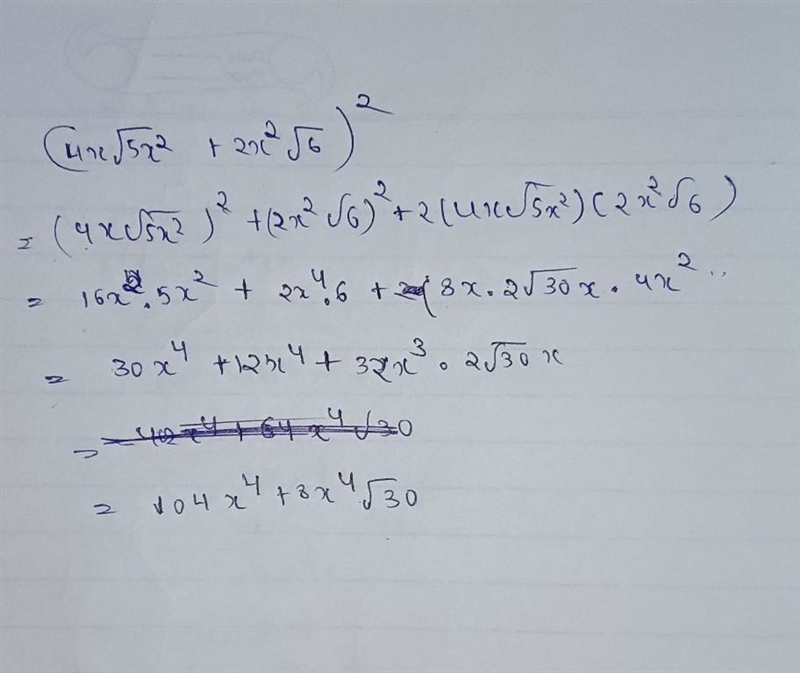 (4x√5x² + 2x²√6)²
= (4x√5x²)² + (2x²√6)² + 2(4x√5x²)(2x²√6)
= 16x²·5x² + 2x⁴·6 + (8x·2√30x·4x²··
= 30x⁴ + 12x⁴ + 32x³·2√30x
= 42x⁴ + 64x⁴√30
= 104x⁴ + 8x⁴√30